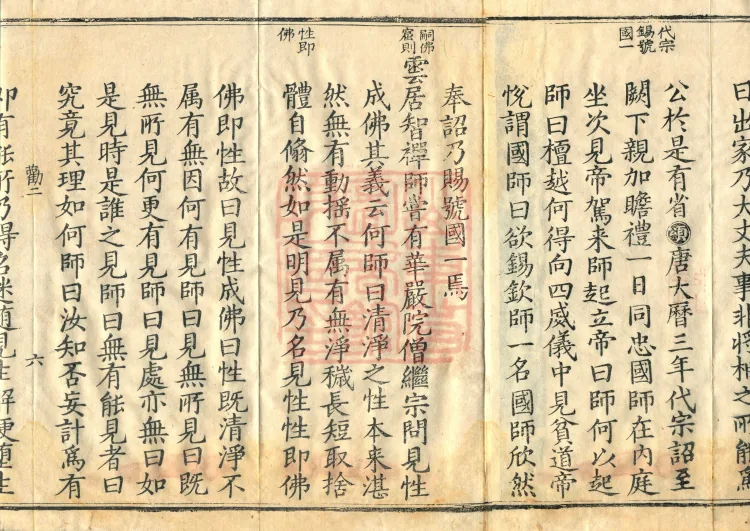 曰出家乃大丈夫事非將相之所能爲
代宗
錫號
國一
公於是有省唐大曆三年代宗詔至
闕下親加瞻禮一日同忠國師在内庭
坐次見帝駕来師起立帝曰師何以起
師曰檀越何得向四威儀中見貧道帝
恱謂國師曰欲錫欽師一名國師欣然
奉詔乃賜號國一焉
嗣佛
窟則
雲居智禪師甞有華嚴院僧繼宗問見性
成佛其義云何師曰清淨之性本来湛
然無有動揺不属有無淨穢長短取捨
性即
佛
體自翛然如是明見乃名見性性即佛
佛即性故曰見性成佛曰性既清淨不
属有無因何有見師曰見無所見曰既
無所見何更有見師曰見處亦無曰如
是見時是誰之見師曰無有能見者曰
究竟其理如何師曰汝知否妄計爲有
勸二
六
即有能所乃得名迷隨見生解便墮生